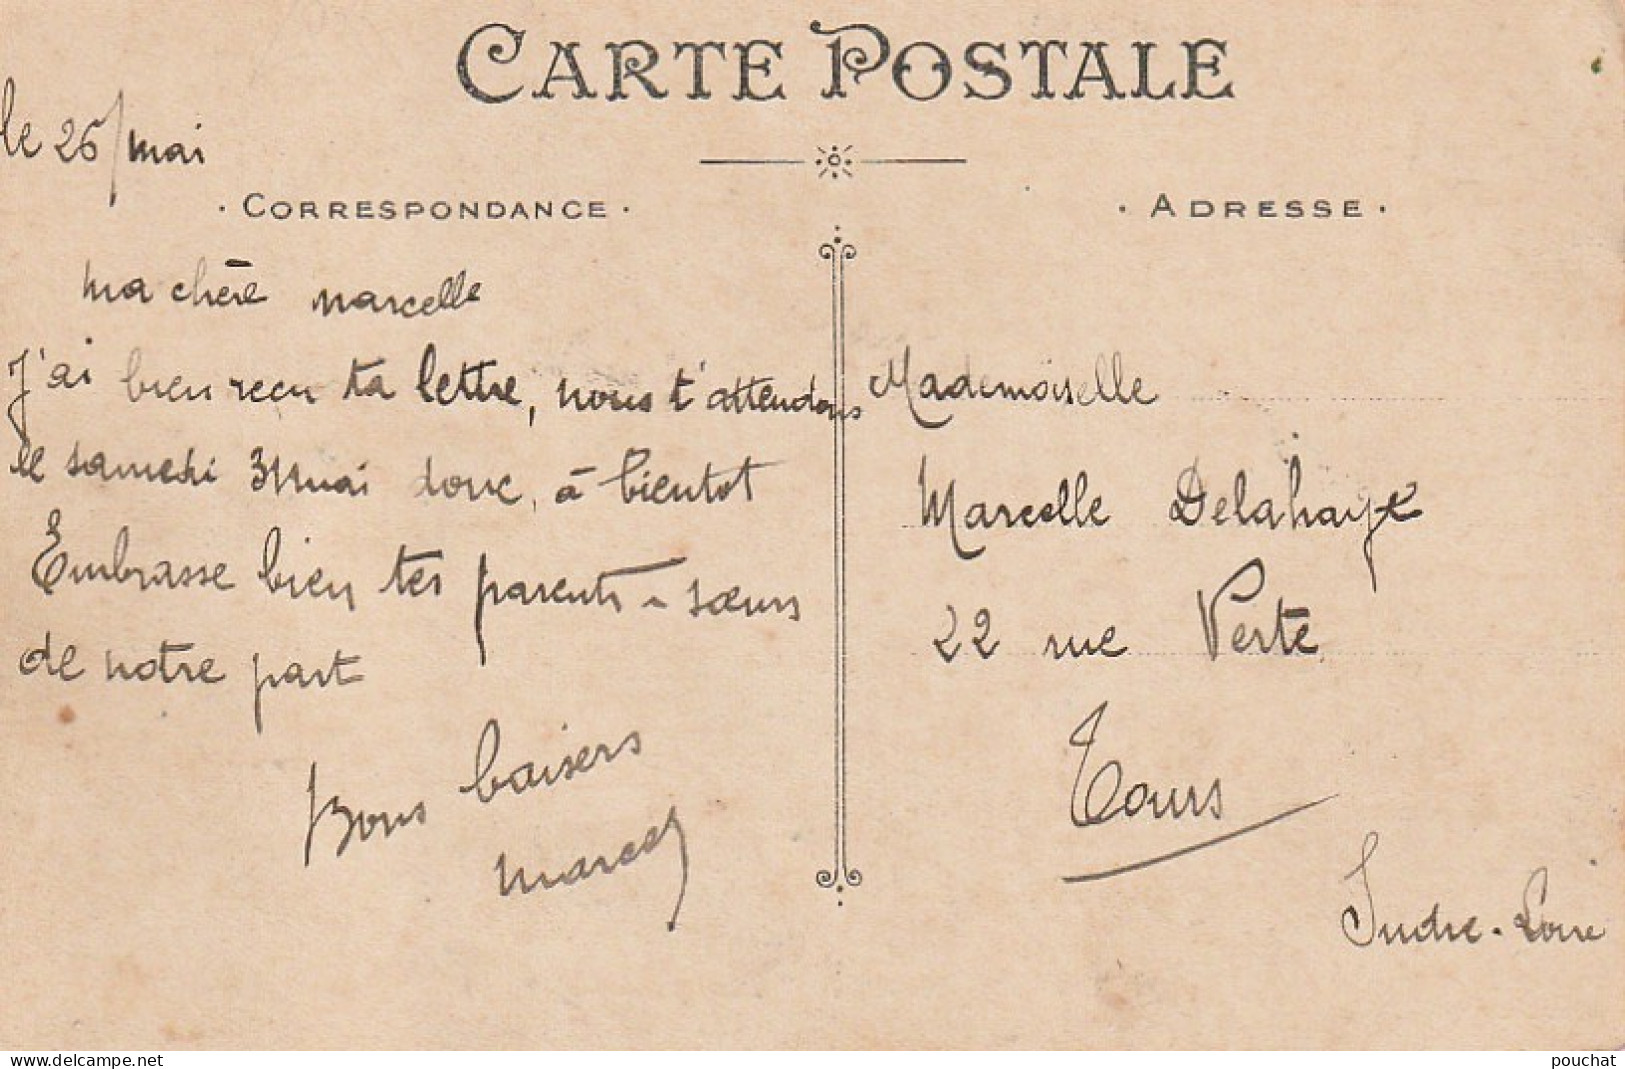 CARTE POSTALE
le 26/mai
· CORRESPONDANCE ·
ma chère marcelle
J'ai bien reçu ta lettre, nous t'attendons
le samedi 31 mai donc, à bientot
Embrasse bien tes parents - sœurs
de notre part
Bons baisers
marcel
· ADRESSE ·
Mademoiselle
Marcelle Delahaye
22 rue Verte
Tours
Indre-Loire
www.delcampe.net
pouchat